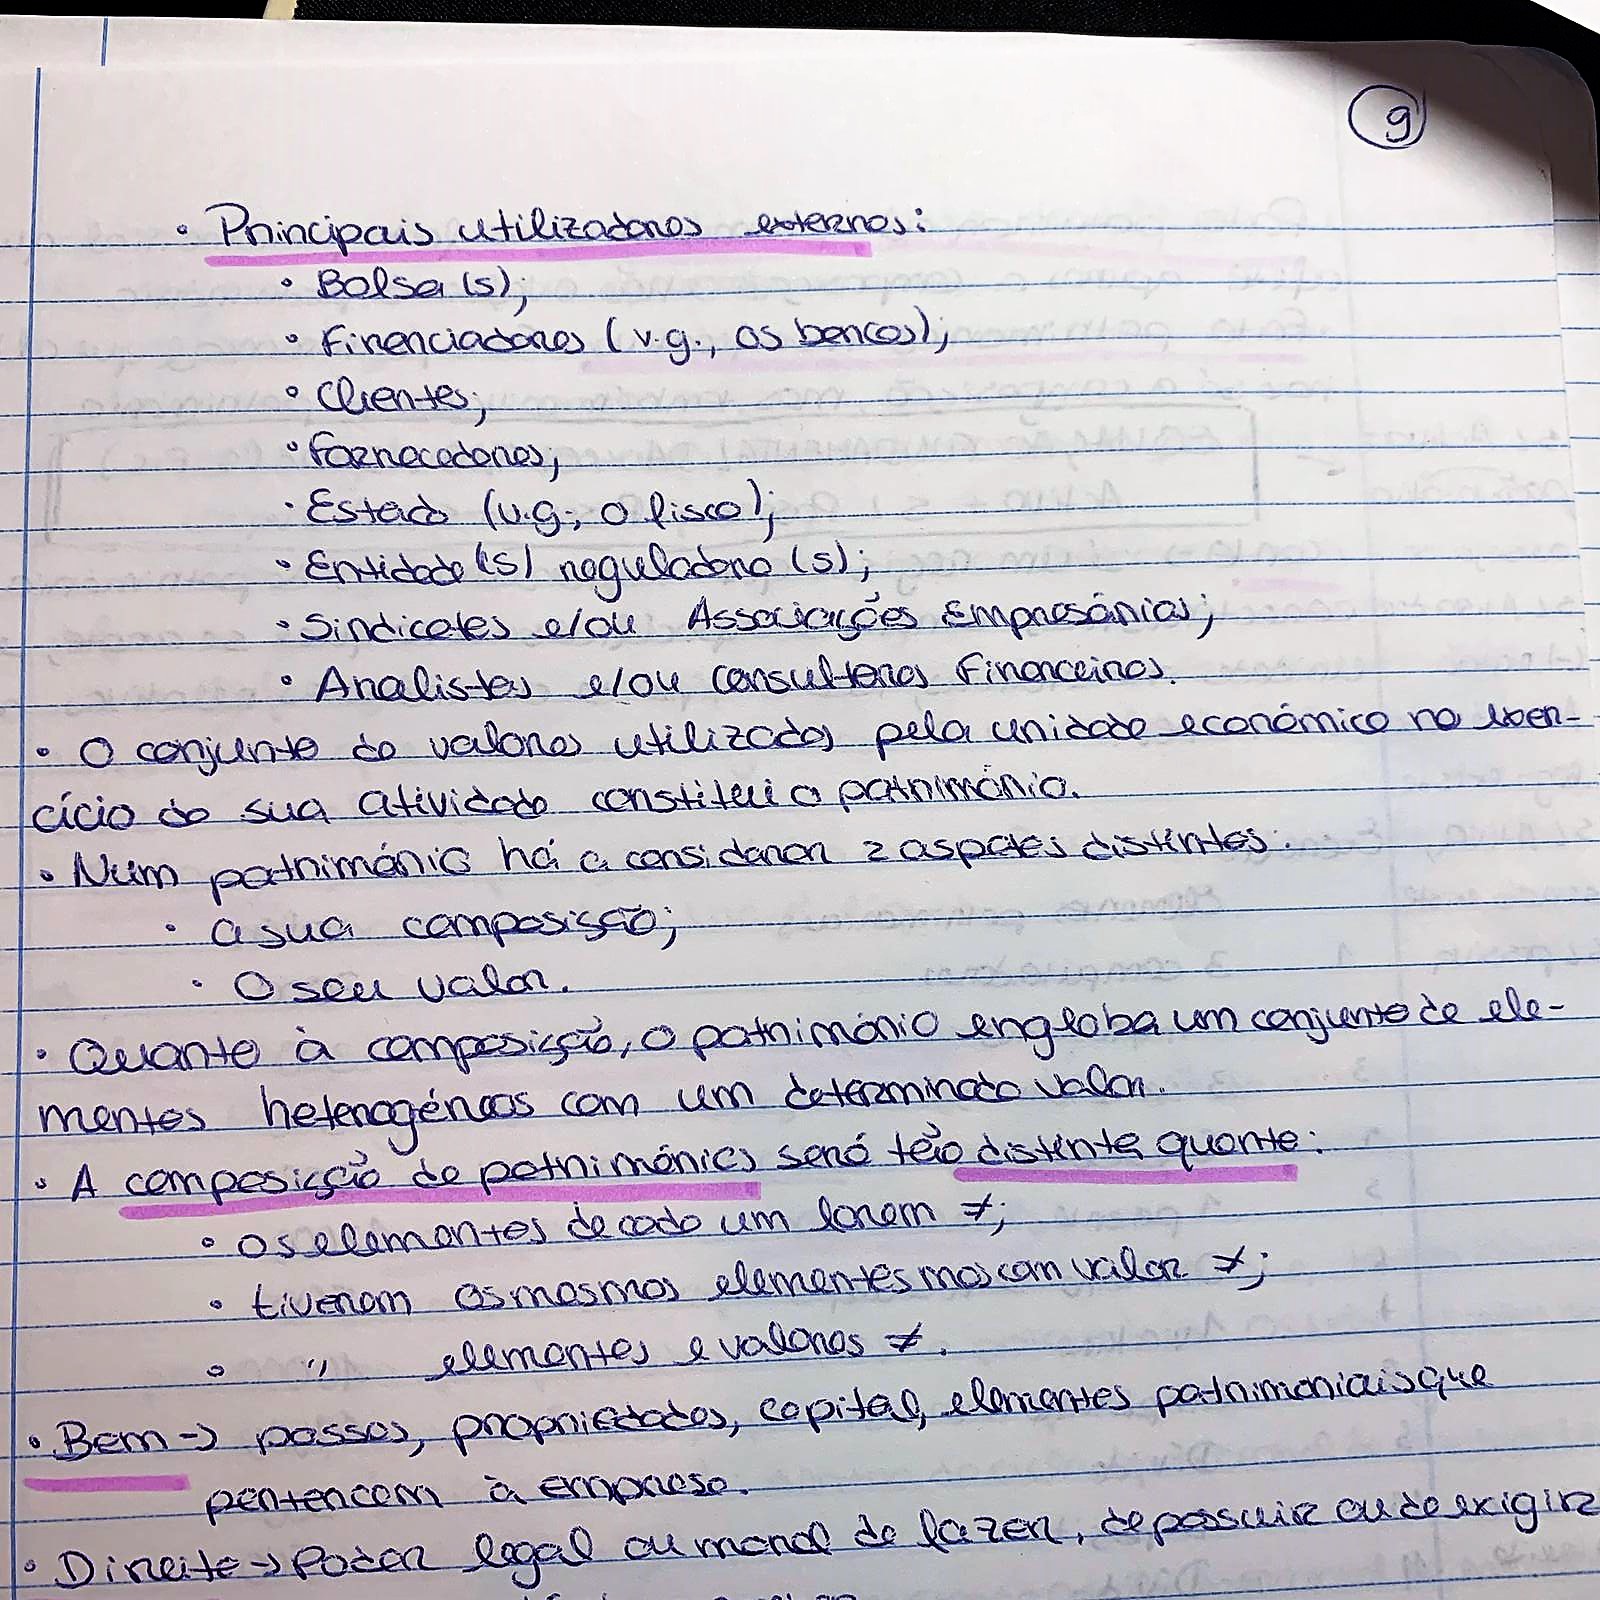 9
• Principais utilizadores externos:
• Bolsa(s);
• Financiadores (v.g., os bancos);
• Clientes;
• Fornecedores;
• Estado (v.g., o fisco);
• Entidade(s) reguladora(s);
• Sindicatos e/ou Associações Empresárias;
• Analistas e/ou consultores Financeiros.
• O conjunto de valores utilizados pela unidade económica no exer-
cício da sua atividade constitui o património.
• Num património há a considerar 2 aspetos distintos:
• a sua composição;
• O seu valor.
• Quanto à composição, o património engloba um conjunto de ele-
mentos heterogéneos com um determinado valor.
• A composição de patrimónios será tão distinta quanto:
• os elementos de cada um forem ≠;
• tiverem os mesmos elementos mas com valor ≠;
• " elementos e valores ≠.
• Bem → posses, propriedades, capital, elementos patrimoniais que
pertencem à empresa.
• Direito → Poder legal ou moral de fazer, de possuir ou de exigir